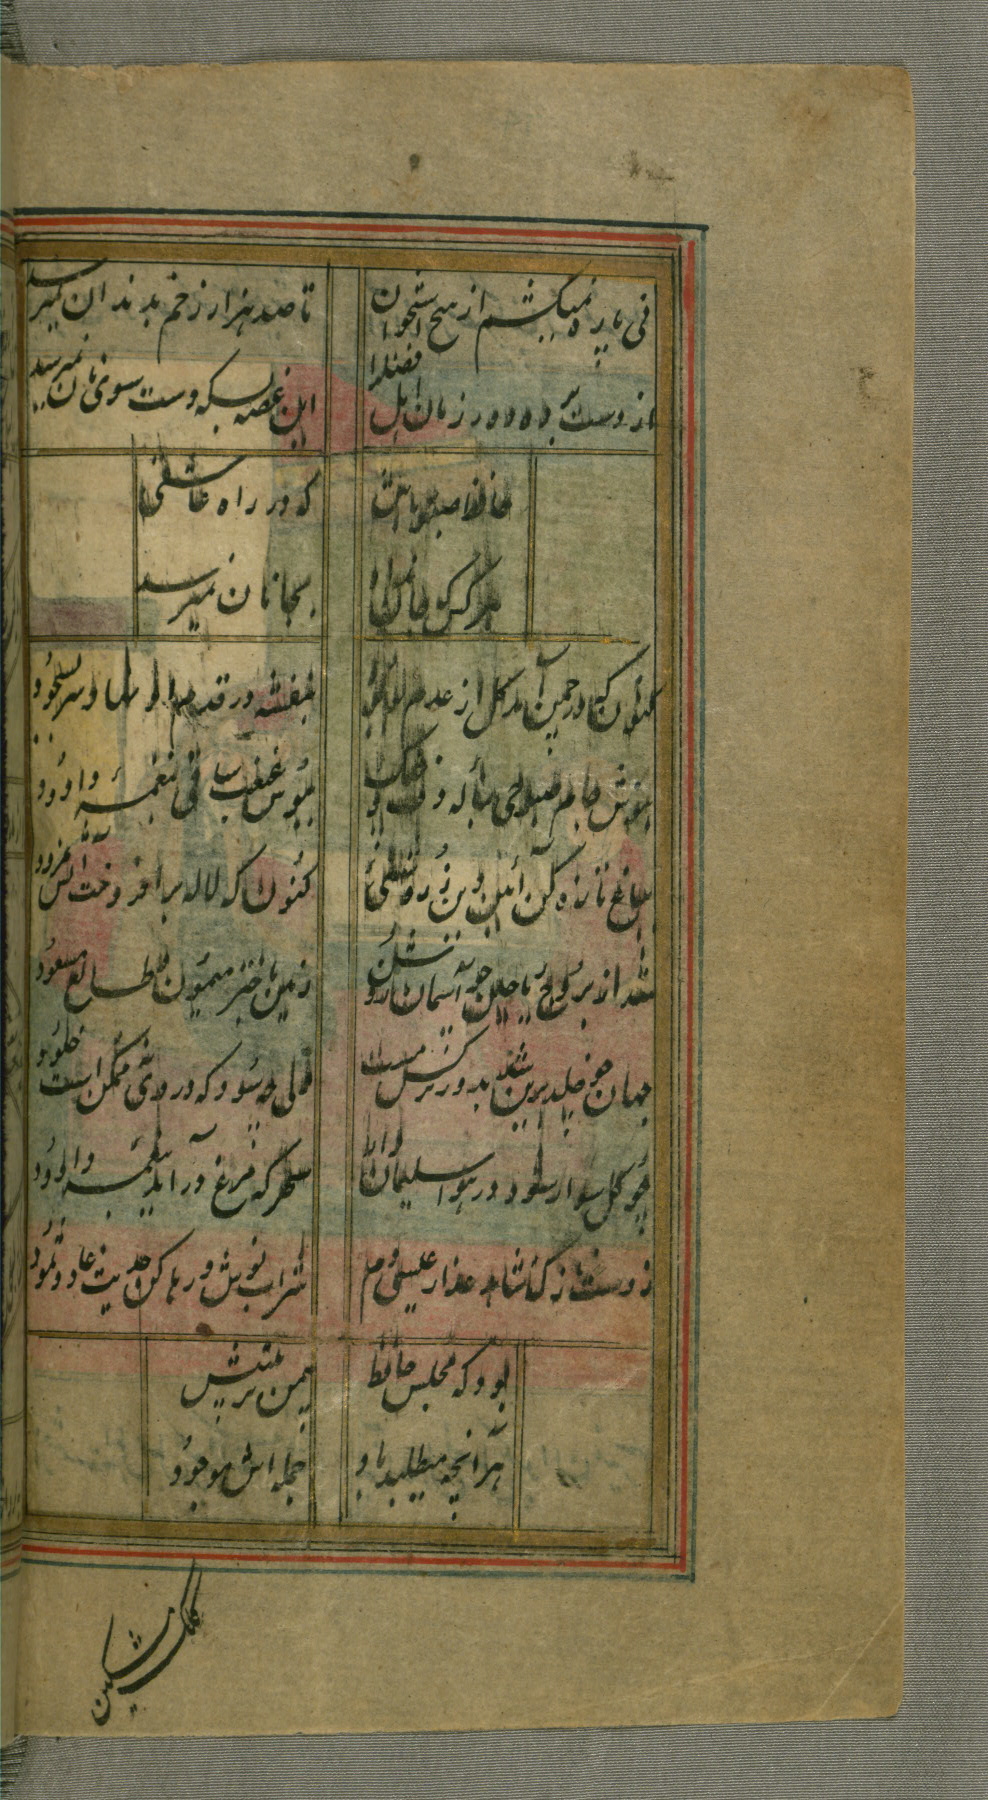 فی یاره میکشم از هیچ استخوان
تا صد هزار زخم بدندان نمیرسد
از دست برده در زمان اهل فضلرا
این غصه بسکه دست سوی نان نمیرسد
حافظ صبور باش
که در راه عاشقی
هر کس که جان نداد
بجانان نمیرسد
کنون که در چمن آمد گل از عدم بوجود
بنفشه در قدم او نهاد سر بسجود
بنوش جام صبوحی بناله دف و چنگ
ببوس غبغب ساقی بنغمه داوود
بباغ تازه کن آئین دین زردشتی
کنون که لاله برافروخت آتش نمرود
شد از بروج ریاحین چو آسمان روشن
زمین باختر میمون طالع مسعود
جهان چو خلد برین شد بدور نرگس
ولی چه سود که در وی نه ممکن است خلود
چو گل سوار شود در هوا سلیمان وار
سحر که مرغ در آید بنغمه داوود
ز دست نازک شاهد عذار عیسی دم
شراب نوش و رها کن حدیث عاد و ثمود
بود که مجلس حافظ
بیمن تربیتش
هر آنچه میطلبد باد
جمله اش موجود
کلک مشکین